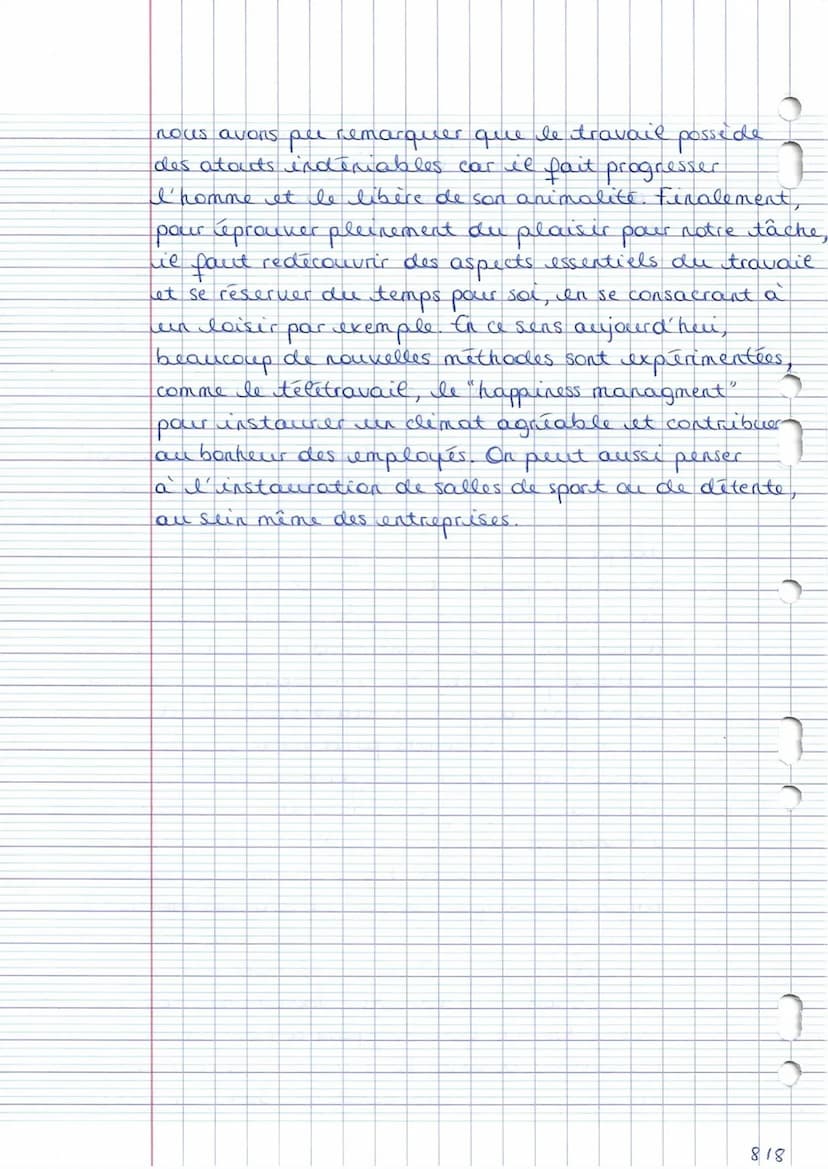 nous avons pu remarquer que le travail possède
des atouts indéniables car il fait progresser
l'homme et le libère de son animalité. Finalement,
pour éprouver pleinement du plaisir pour notre tâche,
il faut redécouvrir des aspects essentiels du travail
et se réserver du temps pour soi, en se consacrant à
un loisir par exemple. En ce sens aujourd'hui,
beaucoup de nouvelles méthodes sont expérimentées,
comme le télétravail, le "happiness managment"
pour instaurer un climat agréable et contribuer
au bonheur des employés. On peut aussi penser
à l'instauration de salles de sport ou de détente,
au sein même des entreprises.
8/8